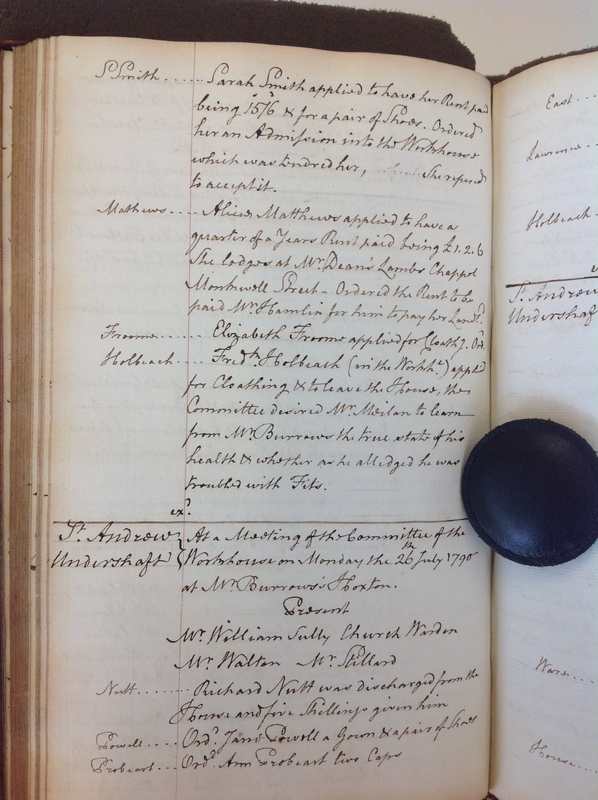 S Smith ...... Sarah Smith applied to have her Rent paid
being 15/6 & for a pair of Shoes. Ordered
her an Admission into the Workhouse
which was tendred her, She refused
to accept it.
Mathews .... Alice Matthews applied to have a
quarter of a Years Rent paid being £1.2.6
She lodges at Mr. Dean's Lambs Chappel
Monkwell Street - Ordered the Rent to be
paid Mr. Hamlin for him to pay her Landd.
Froome ...... Elizabeth Froome applied for Cloathg. Ord.
Holbeach .... Fredk. Holbeach (in the Workhe.) applied
for Cloathing & to leave the House, the
Committee desired Mr. Meilan to learn
from Mr. Burrows the true state of his
health & whether as he alledged he was
troubled with Fits.
exd.
St. Andrew } At a Meeting of the Committee of the
Undershaft } Workhouse on Monday the 26th July 1790
at Mr. Burrows's Hoxton.
Present
Mr. William Sully Church Warden
Mr. Walton Mr. Stillard
Nutt ....... Richard Nutt was discharged from the
House and five Shillings given him
Powell .... Ord. Jane Powell a Gown & a pair of Shoes
Probeart ... Ord. Ann Probeart two Caps
East ....
Lawrence ...
Holbeach ..
St. Andrew
Undershaf
Ware ....
House ....